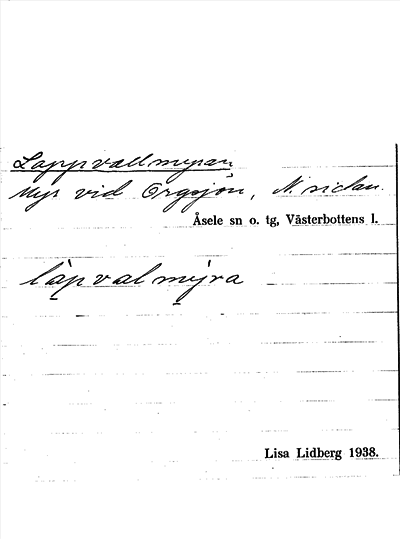 Lappvallmyran
Myr vid Orgsjön, N. sidan.
Åsele sn o. tg, Västerbottens l.
làp val mýra
Lisa Lidberg 1938.